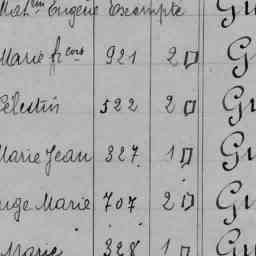 Math.in Eugène Exempte Gu
Marie fr.cois 921 2 G
Célestin 522 2 Gu
Marie Jean 327 1 Gu
Marie 707 2 Gu
Marie 328 1 Gu